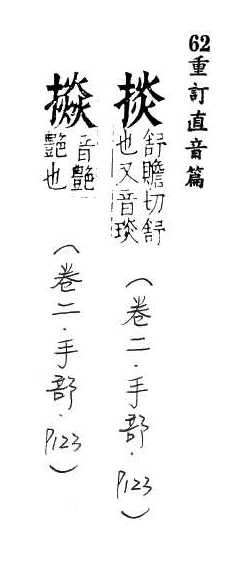 62重訂直音篇
掞
舒贍切舒
也又音琰
(卷二·手部·P123)
音艷
艷也
(卷二·手部·P123)